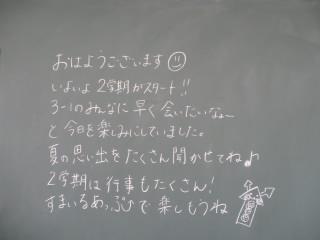 おはようございます☺
いよいよ2学期がスタート!!
3-1のみんなに早く会いたいなぁ〜
と今日を楽しみにしていました。
夏の思い出をたくさん聞かせてね♪
2学期は行事もたくさん!
すまいるあっぷで楽しもうね